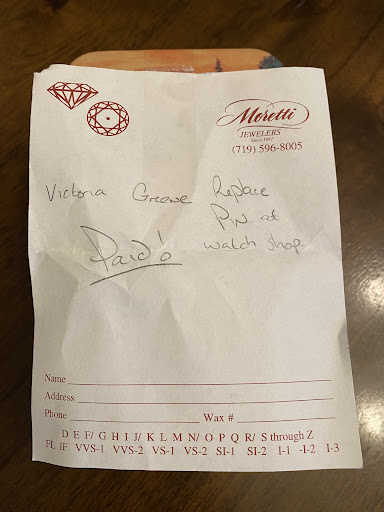 Moretti
JEWELERS
(719) 596-8005
Victoria Greene Replace
Pin at
Paid! watch shop
Name
Address
Phone Wax #
D E F/ G H I J/ K L M N/ O P Q R/ S through Z
FL IF VVS-1 VVS-2 VS-1 VS-2 SI-1 SI-2 I-1 -I-2 I-3